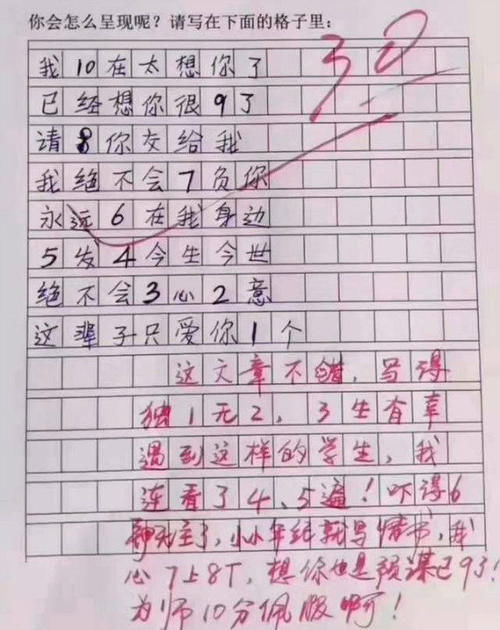 你会怎么呈现呢？请写在下面的格子里：
30
我10在太想你了
已经想你很9了
请8你交给我
我绝不会7负你
永远6在我身边
5发4今生今世
绝不会3心2意
这辈子只爱你1个
这文章不错，写得
独1无2，3生有幸
遇到这样的学生，我
连看了4、5遍！吓得6
神无主了，小小年纪就写情书，我
心7上8下，想你也是预谋已9了！
为师10分佩服啊！